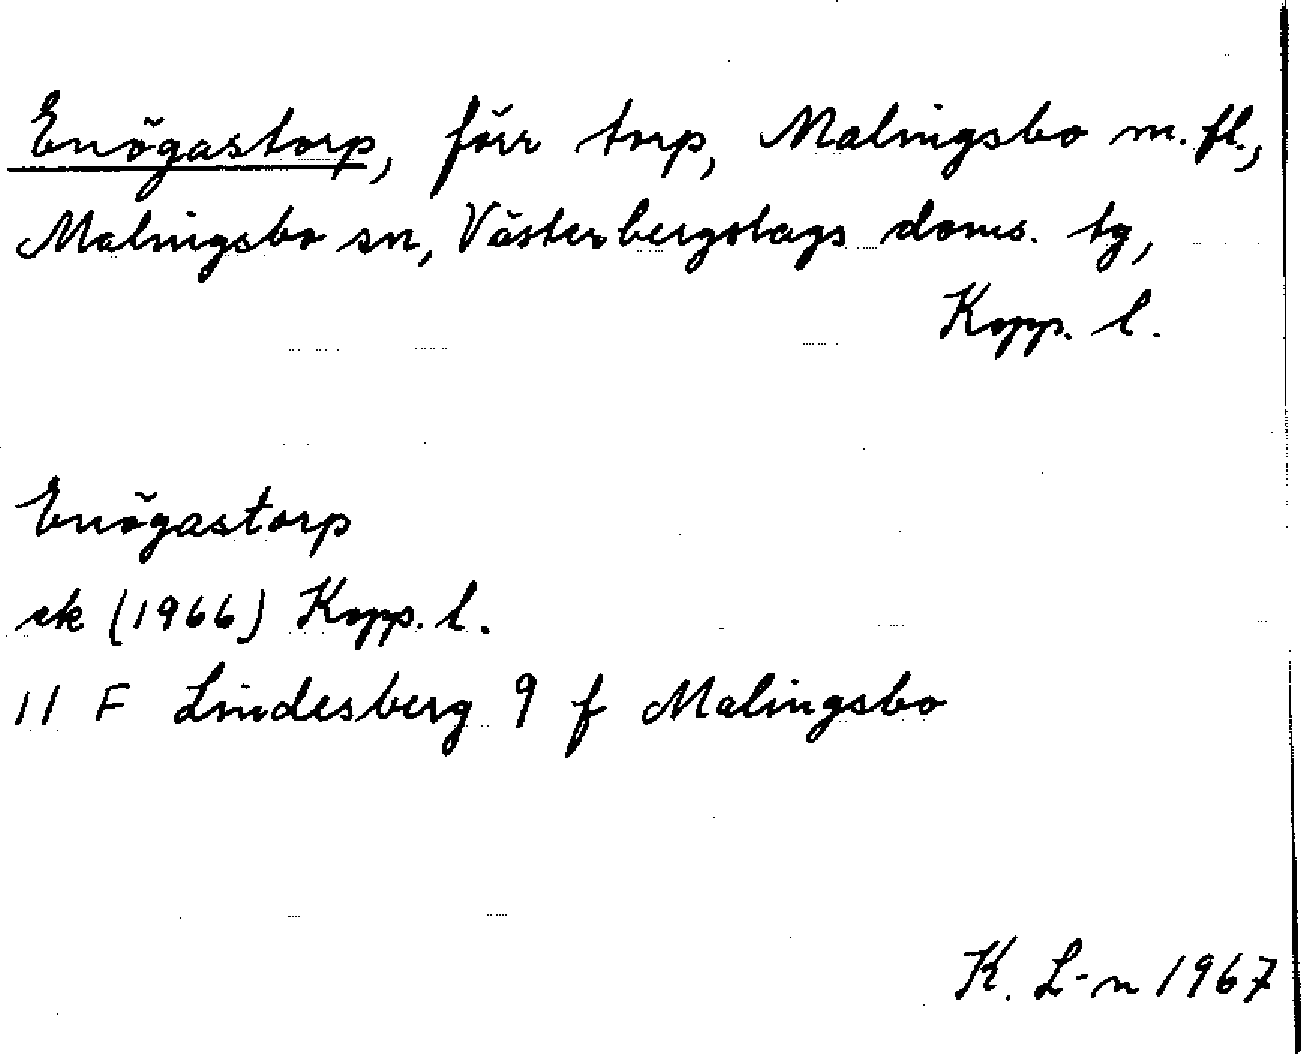 Enögastorp, förr torp, Malingsbo m.fl.,
Malingsbo sn, Västerbergslags doms. tg,
Kopp. l.
Enögastorp
ek (1966) Kopp. l.
11 F Lindesberg 9 f Malingsbo
K. L-n 1967